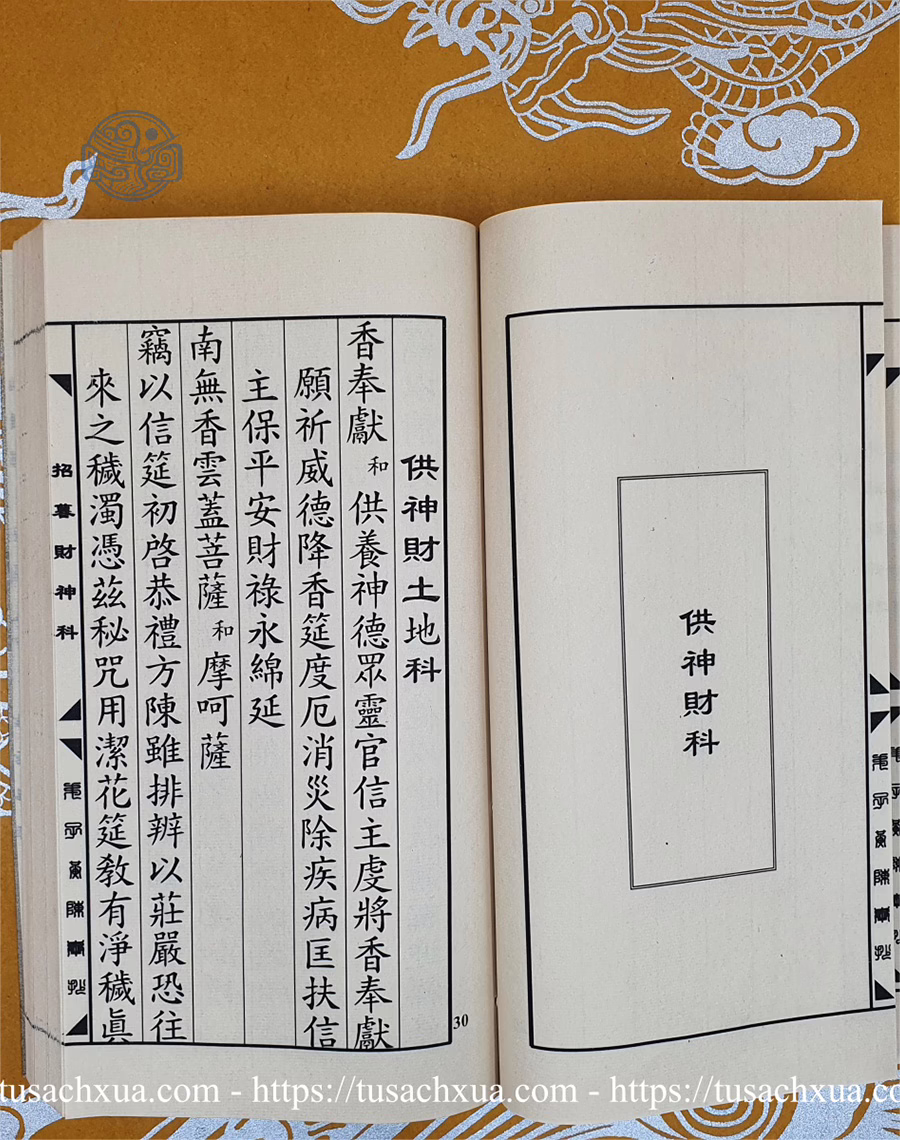 供神財科
供神財土地科
香奉獻 和 供養神德眾靈官信主虔將香奉獻
願祈威德降香筵度厄消災除疾病匡扶信
主保平安財祿永綿延
南無香雲蓋菩薩 和 摩呵薩
竊以信筵初啓恭禮方陳雖排辨以莊嚴恐往
來之穢濁憑茲秘咒用潔花筵教有淨穢眞
招暮財神科
30
tusachxua.com - https://tusachxua.com - https://tusachxua.co